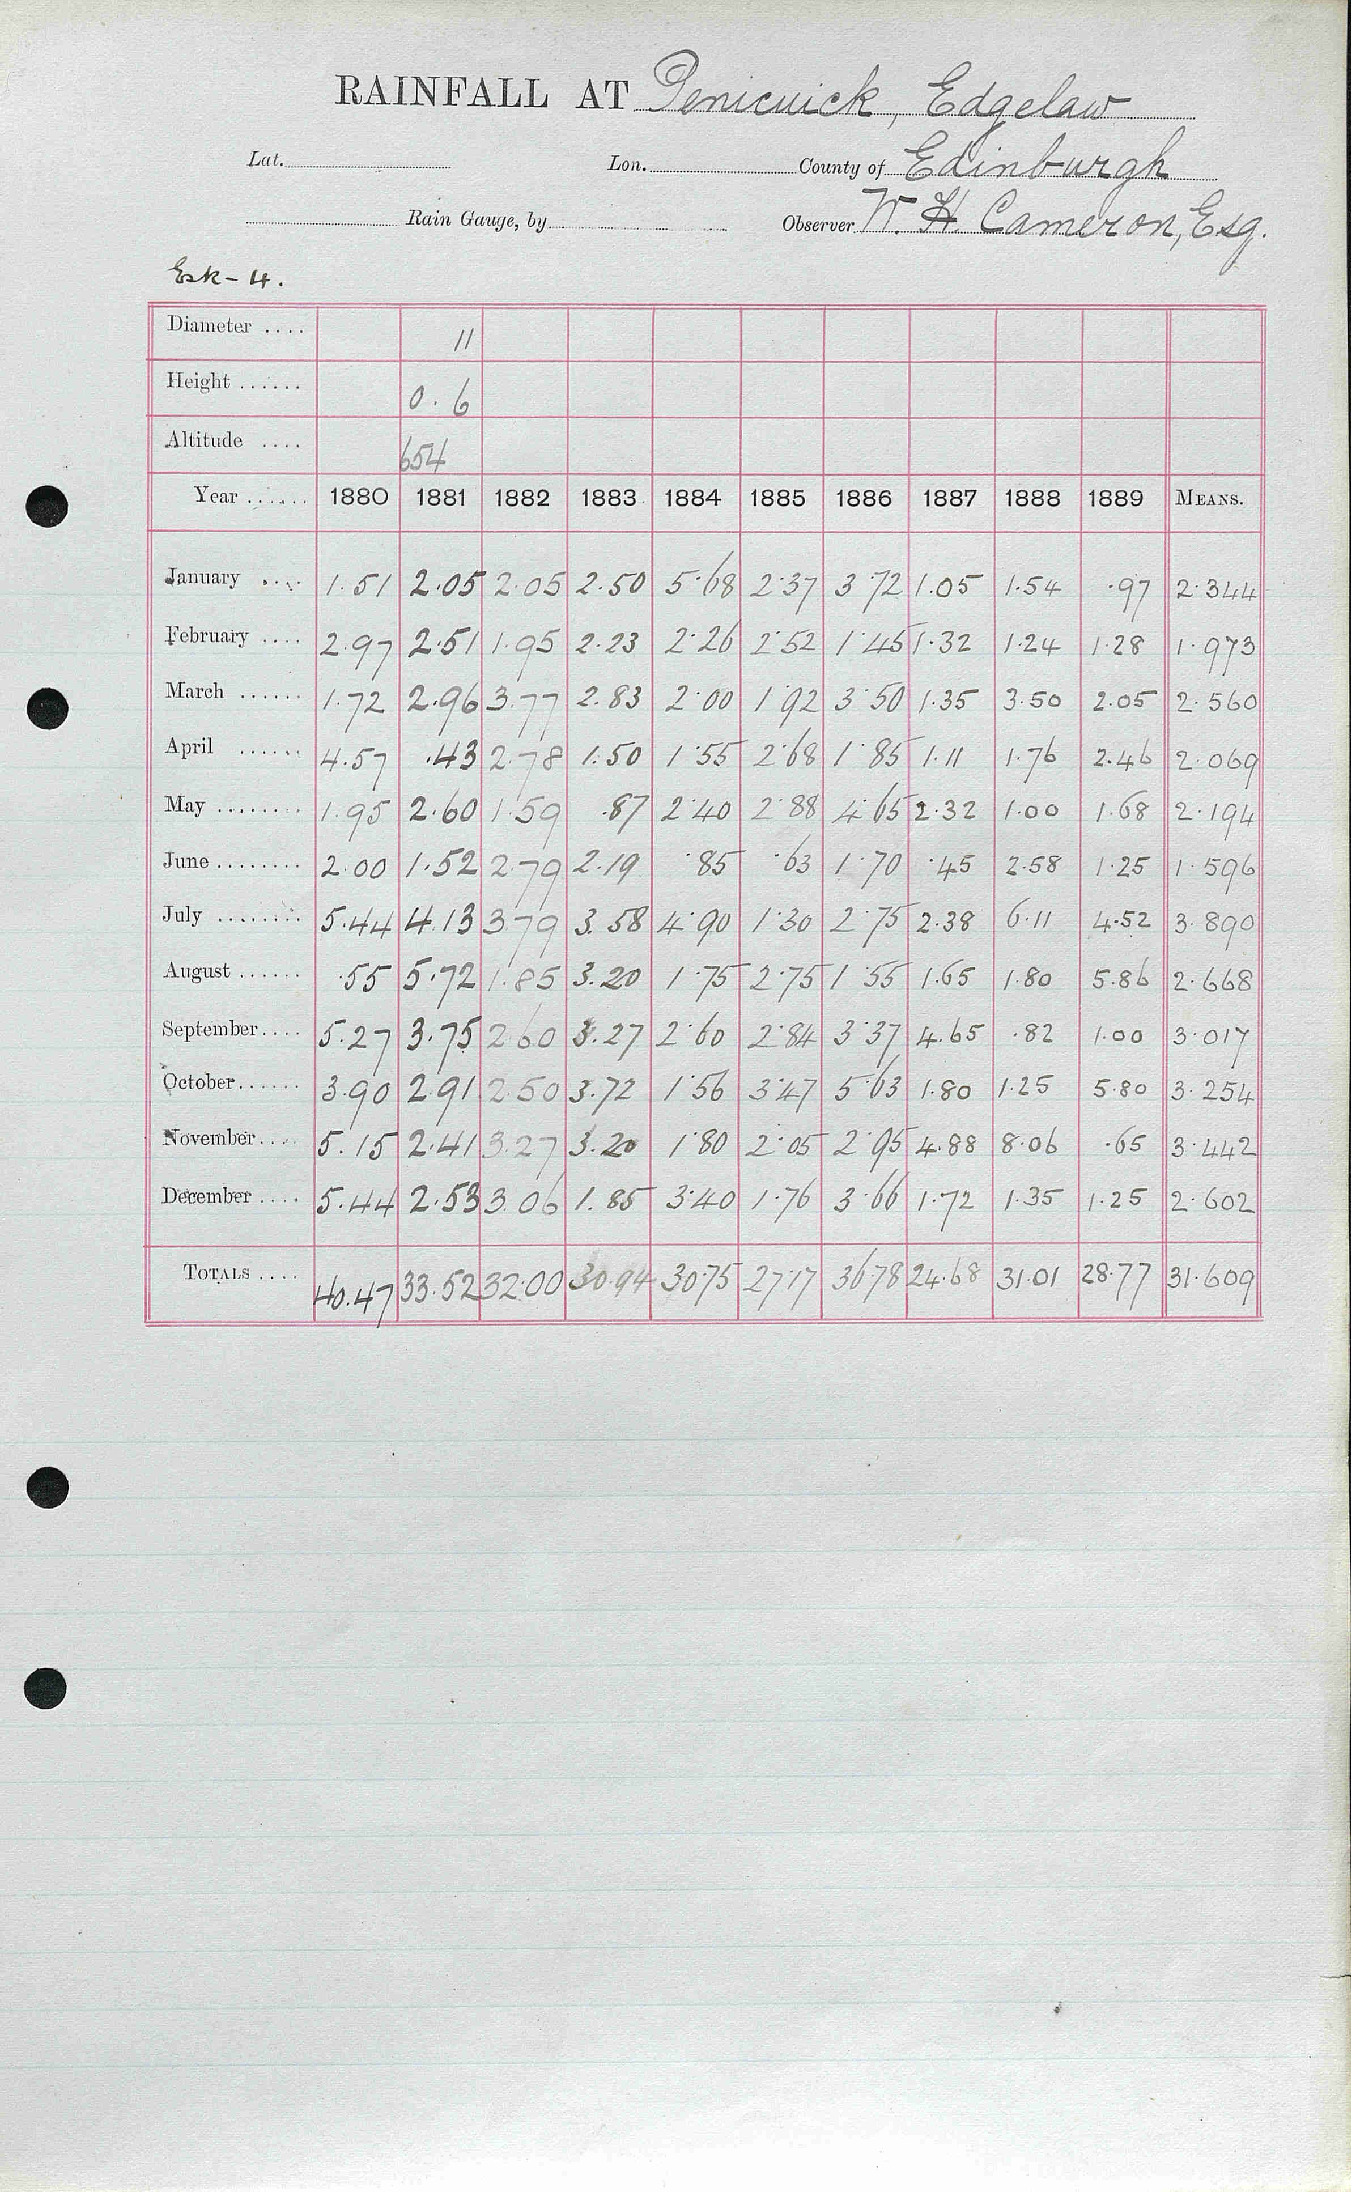 RAINFALL AT Penicuick, Edgelaw
Lat. Lon. County of Edinburgh
Rain Gauge, by Observer W. H. Cameron, Esq.
Esk - 4.
Diameter .... 11
Height ...... 0.6
Altitude .... 654
Year ...... 1880 1881 1882 1883 1884 1885 1886 1887 1888 1889 MEANS.
January .... 1.51 2.05 2.05 2.50 5.68 2.37 3.72 1.05 1.54 .97 2.344
February .... 2.97 2.51 1.95 2.23 2.26 2.52 1.45 1.32 1.24 1.28 1.973
March ...... 1.72 2.96 3.77 2.83 2.00 1.92 3.50 1.35 3.50 2.05 2.560
April ...... 4.57 .43 2.78 1.50 1.55 2.68 1.85 1.11 1.76 2.46 2.069
May ........ 1.95 2.60 1.59 .87 2.40 2.88 4.65 2.32 1.00 1.68 2.194
June ........ 2.00 1.52 2.79 2.19 .85 .63 1.70 .45 2.58 1.25 1.596
July ........ 5.44 4.13 3.79 3.58 4.90 1.30 2.75 2.38 6.11 4.52 3.890
August ...... .55 5.72 1.85 3.20 1.75 2.75 1.55 1.65 1.80 5.86 2.668
September .... 5.27 3.75 2.60 3.27 2.60 2.84 3.37 4.65 .82 1.00 3.017
October ...... 3.90 2.91 2.50 3.72 1.56 3.47 5.63 1.80 1.25 5.80 3.254
November .... 5.15 2.41 3.27 3.20 1.80 2.05 2.95 4.88 8.06 .65 3.442
December .... 5.44 2.53 3.06 1.85 3.40 1.76 3.66 1.72 1.35 1.25 2.602
TOTALS .... 40.47 33.52 32.00 30.94 30.75 27.17 36.78 24.68 31.01 28.77 31.609